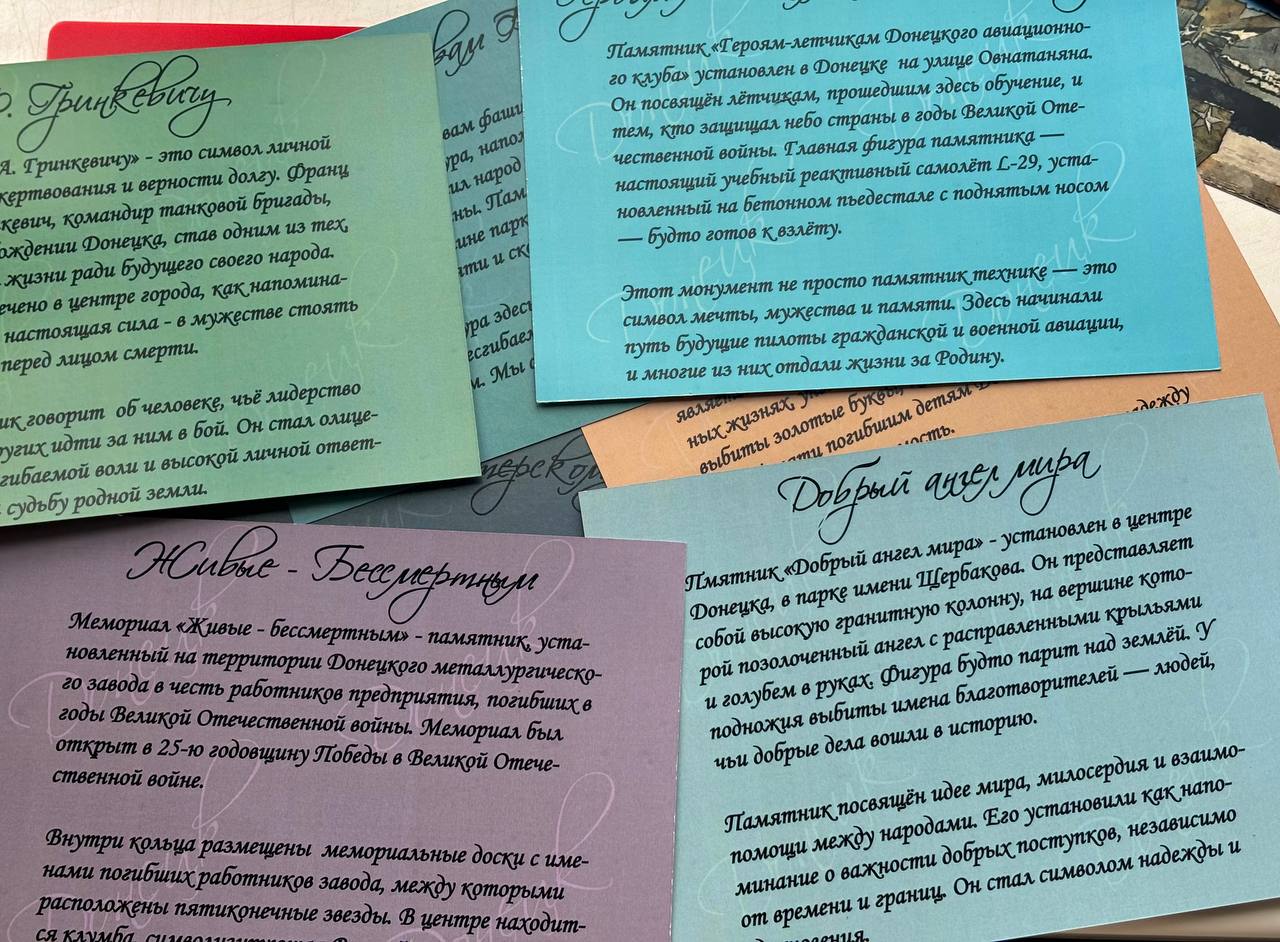 Ф. Гринкевичу
А. Гринкевичу» - это символ личной
жертвования и верности долгу. Франц
кевич, командир танковой бригады,
ождении Донецка, став одним из тех,
жизни ради будущего своего народа.
ечено в центре города, как напомина-
настоящая сила - в мужестве стоять
перед лицом смерти.
ик говорит об человеке, чьё лидерство
ругих идти за ним в бой. Он стал олице-
гибаемой воли и высокой личной ответ-
судьбу родной земли.
вам
вам фаши
ура, напол
ил народ
ны. Пам
ине парк
ти и ск
ура здесь
есгибаем
м. Мы
Памятник «Героям-летчикам Донецкого авиационно-
го клуба» установлен в Донецке на улице Овнатаняна.
Он посвящён лётчикам, прошедшим здесь обучение, и
тем, кто защищал небо страны в годы Великой Оте-
чественной войны. Главная фигура памятника —
настоящий учебный реактивный самолёт L-29, уста-
новленный на бетонном пьедестале с поднятым носом
— будто готов к взлёту.
Этот монумент не просто памятник технике — это
символ мечты, мужества и памяти. Здесь начинали
путь будущие пилоты гражданской и военной авиации,
и многие из них отдали жизни за Родину.
являет
ных жизнях,
выбиты золотые буквы,
погибшим детям
надежду
терско
Живые - Бессмертным
Мемориал «Живые - бессмертным» - памятник, уста-
новленный на территории Донецкого металлургическо-
го завода в честь работников предприятия, погибших в
годы Великой Отечественной войны. Мемориал был
открыт в 25-ю годовщину Победы в Великой Отече-
ственной войне.
Внутри кольца размещены мемориальные доски с име-
нами погибших работников завода, между которыми
расположены пятиконечные звезды. В центре находит-
ся клумба,
Добрый ангел мира
Пмятник «Добрый ангел мира» - установлен в центре
Донецка, в парке имени Щербакова. Он представляет
собой высокую гранитную колонну, на вершине кото-
рой позолоченный ангел с расправленными крыльями
и голубем в руках. Фигура будто парит над землёй. У
подножия выбиты имена благотворителей — людей,
чьи добрые дела вошли в историю.
Памятник посвящён идее мира, милосердия и взаимо-
помощи между народами. Его установили как напо-
минание о важности добрых поступков, независимо
от времени и границ. Он стал символом надежды и